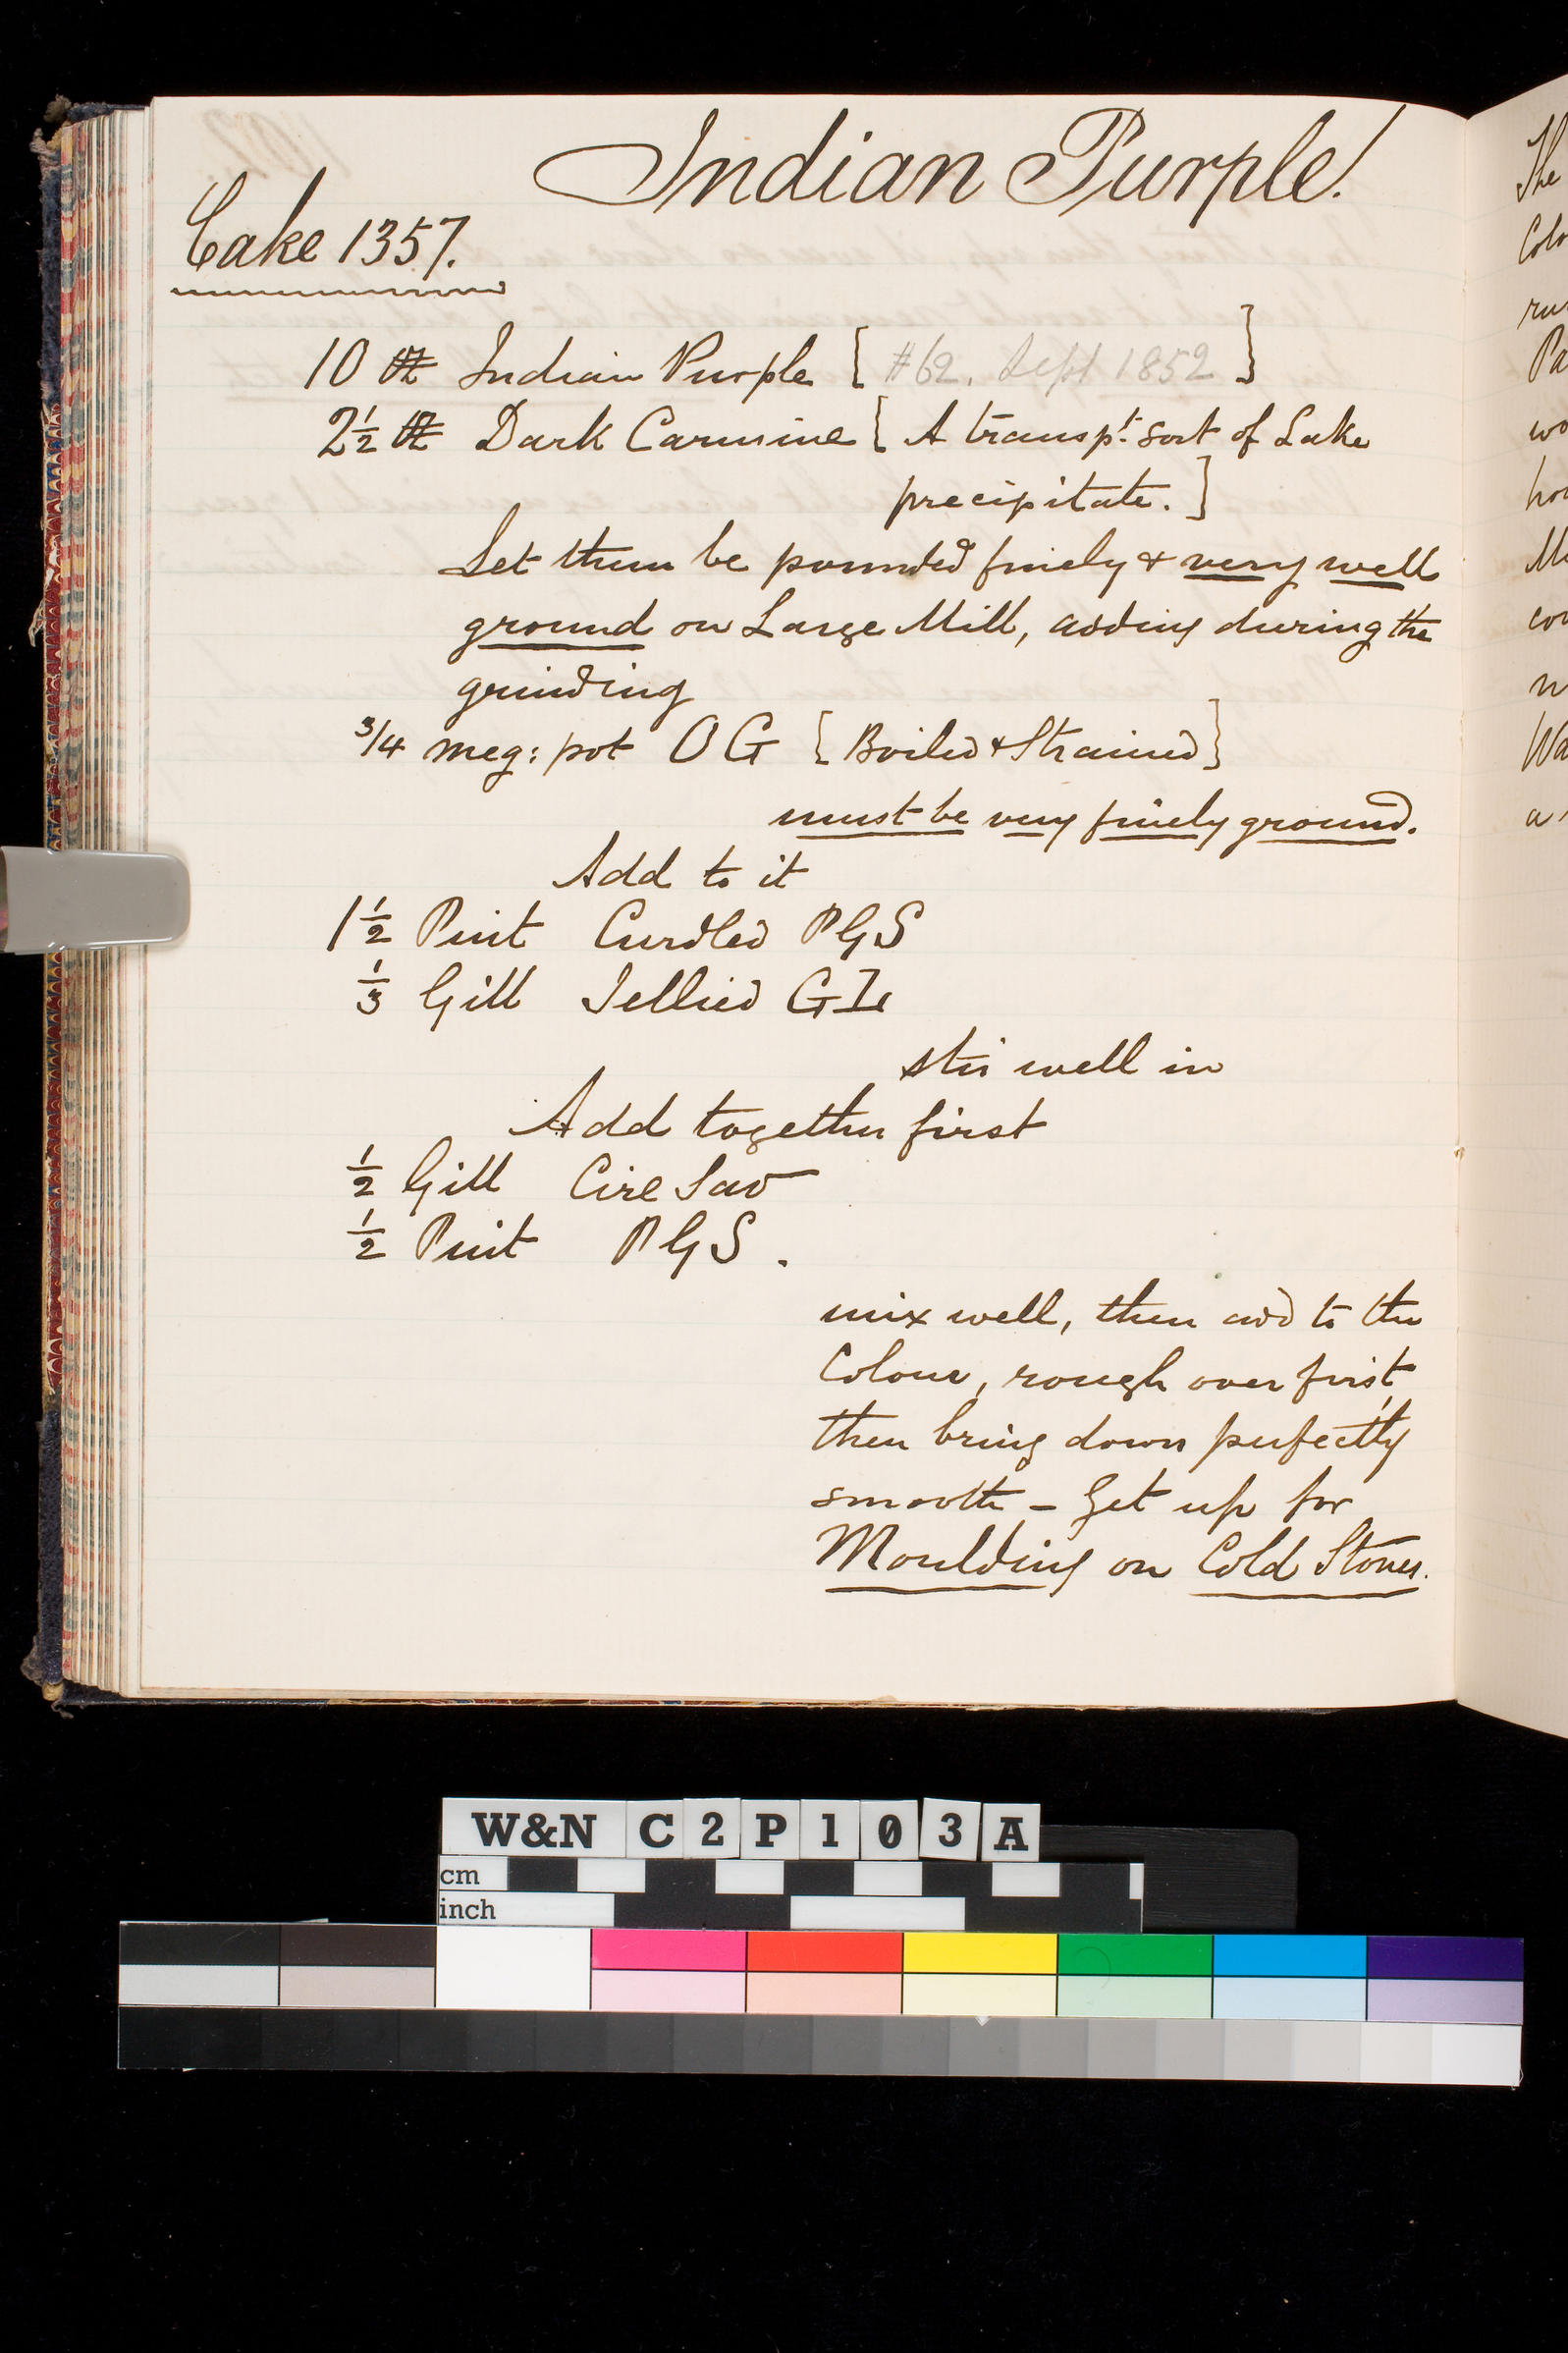 Indian Purple!
Cake 1357.
10 ℔ Indian Purple [ #62. Sept 1852 ]
2½ ℔ Dark Carmine [ A transpt. sort of Lake
precipitate. ]
Let them be pounded finely & very well
ground on Large Mill, adding during the
grinding
3/4 meg: pot O G [ Boiled & Strained ]
must be very finely ground.
Add to it
1½ Pint Curdled PGS
⅓ Gill Jellied G I
stir well in
Add together first
½ Gill Cire Sav
½ Pint PGS.
mix well, then add to the
Colour, rough over first,
then bring down perfectly
smooth – Get up for
Moulding on Cold Stones.
The
Colo
ru
Pa
wo
M
co
Wa
a
W&N C2P103A
cm
inch